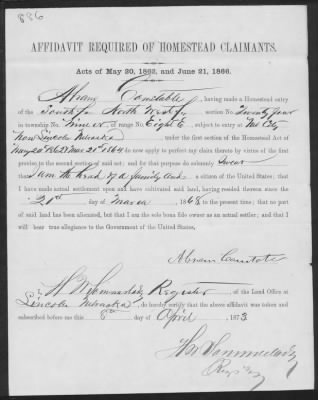 886
AFFIDAVIT REQUIRED OF HOMESTEAD CLAIMANTS.
Acts of May 20, 1862, and June 21, 1866.
I, Abram Constable, having made a Homestead entry
of the South ½ North West ¼ section No. Twenty four
in township No. Nine, of range No. Eight E, subject to entry at Neb City
now Lincoln Nebraska under the first section of the Homestead Act of
May 20th 1862 Mar 21st 1864 do now apply to perfect my claim thereto by virtue of the first
proviso to the second section of said act; and for that purpose do solemnly Swear
that I am the head of a family and a citizen of the United States; that
I have made actual settlement upon and have cultivated said land, having resided thereon since the
21st day of March 1868 to the present time; that no part
of said land has been alienated, but that I am the sole bona fide owner as an actual settler; and that I
will bear true allegiance to the Government of the United States.
Abram
I, Register of the Land Office at
Lincoln Nebraska, do hereby certify that the above affidavit was taken and
subscribed before me this 8th day of April, 1873.
Register